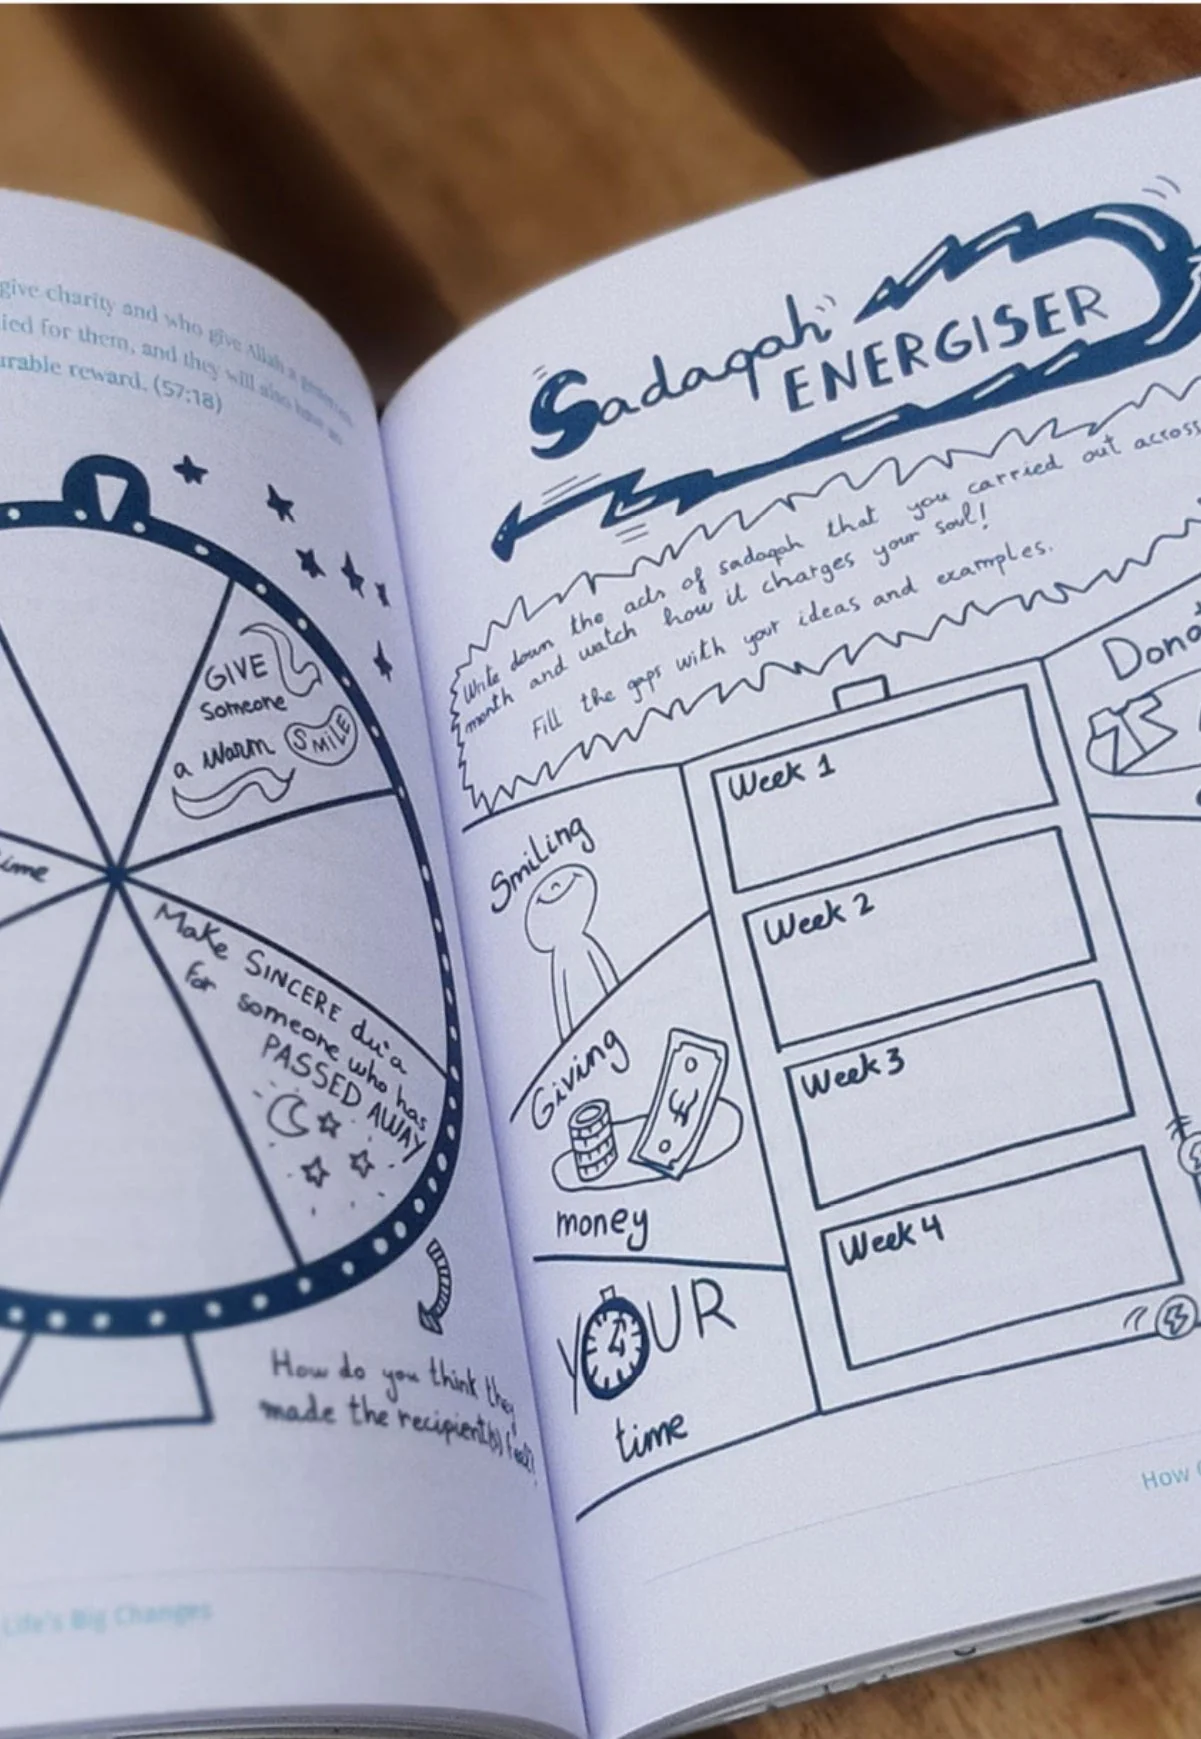 give charity and who give Allah a
ied for them, and they will also have an
urable reward. (57:18)
GIVE
Someone
a warm SMILE
ime
Make SINCERE du'a
for someone who has
PASSED AWAY
How do you think they
made the recipient(s) feel?
Life's Big Changes
Sadaqah
ENERGISER
Write down the acts of sadaqah that you carried out across
month and watch how it charges your soul!
Fill the gaps with your ideas and examples.
Smiling
Giving
£
money
YOUR
time
Week 1
Week 2
Week 3
Week 4
Dona
How